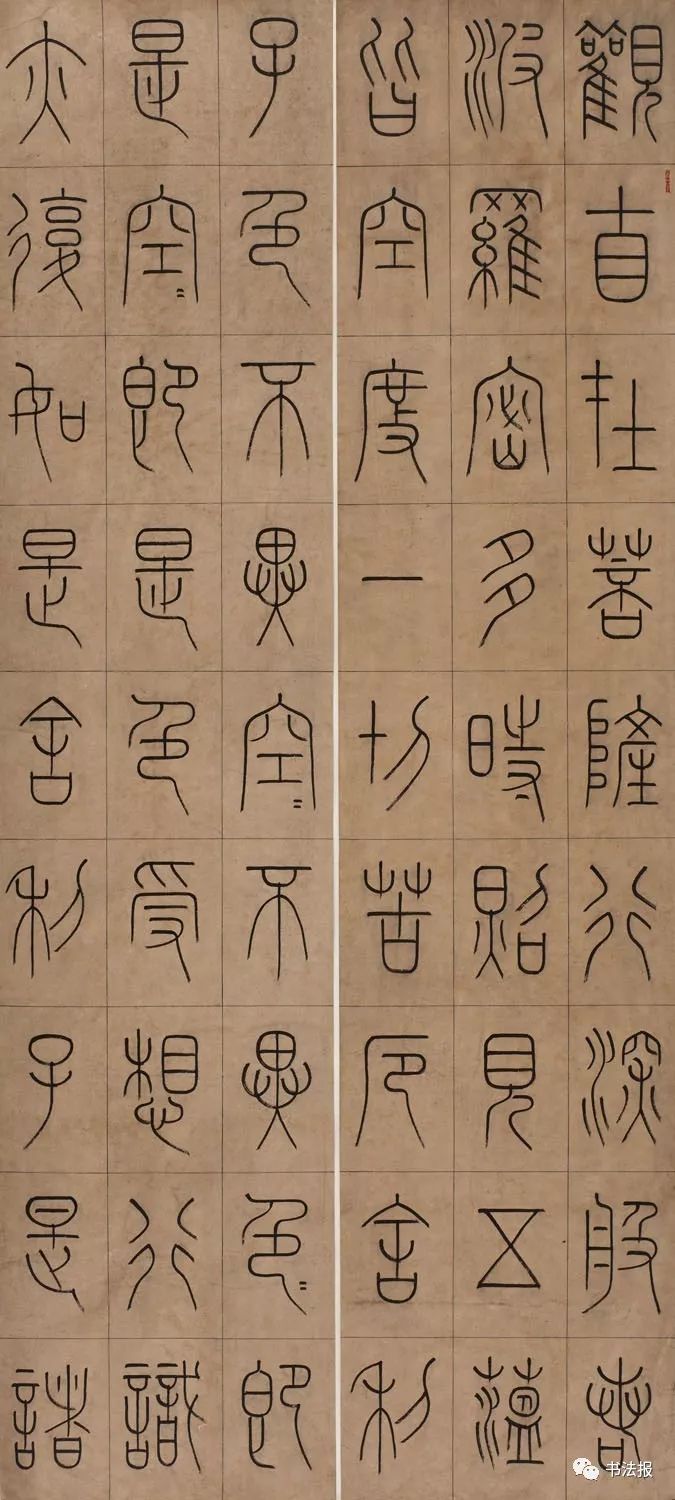 觀自在菩薩行深般若
波羅密多時照見五薀
皆空度一切苦厄舍利
子色不異空〻不異色〻即
是空〻即是色受想行識
亦復如是舍利子是諸
书法报